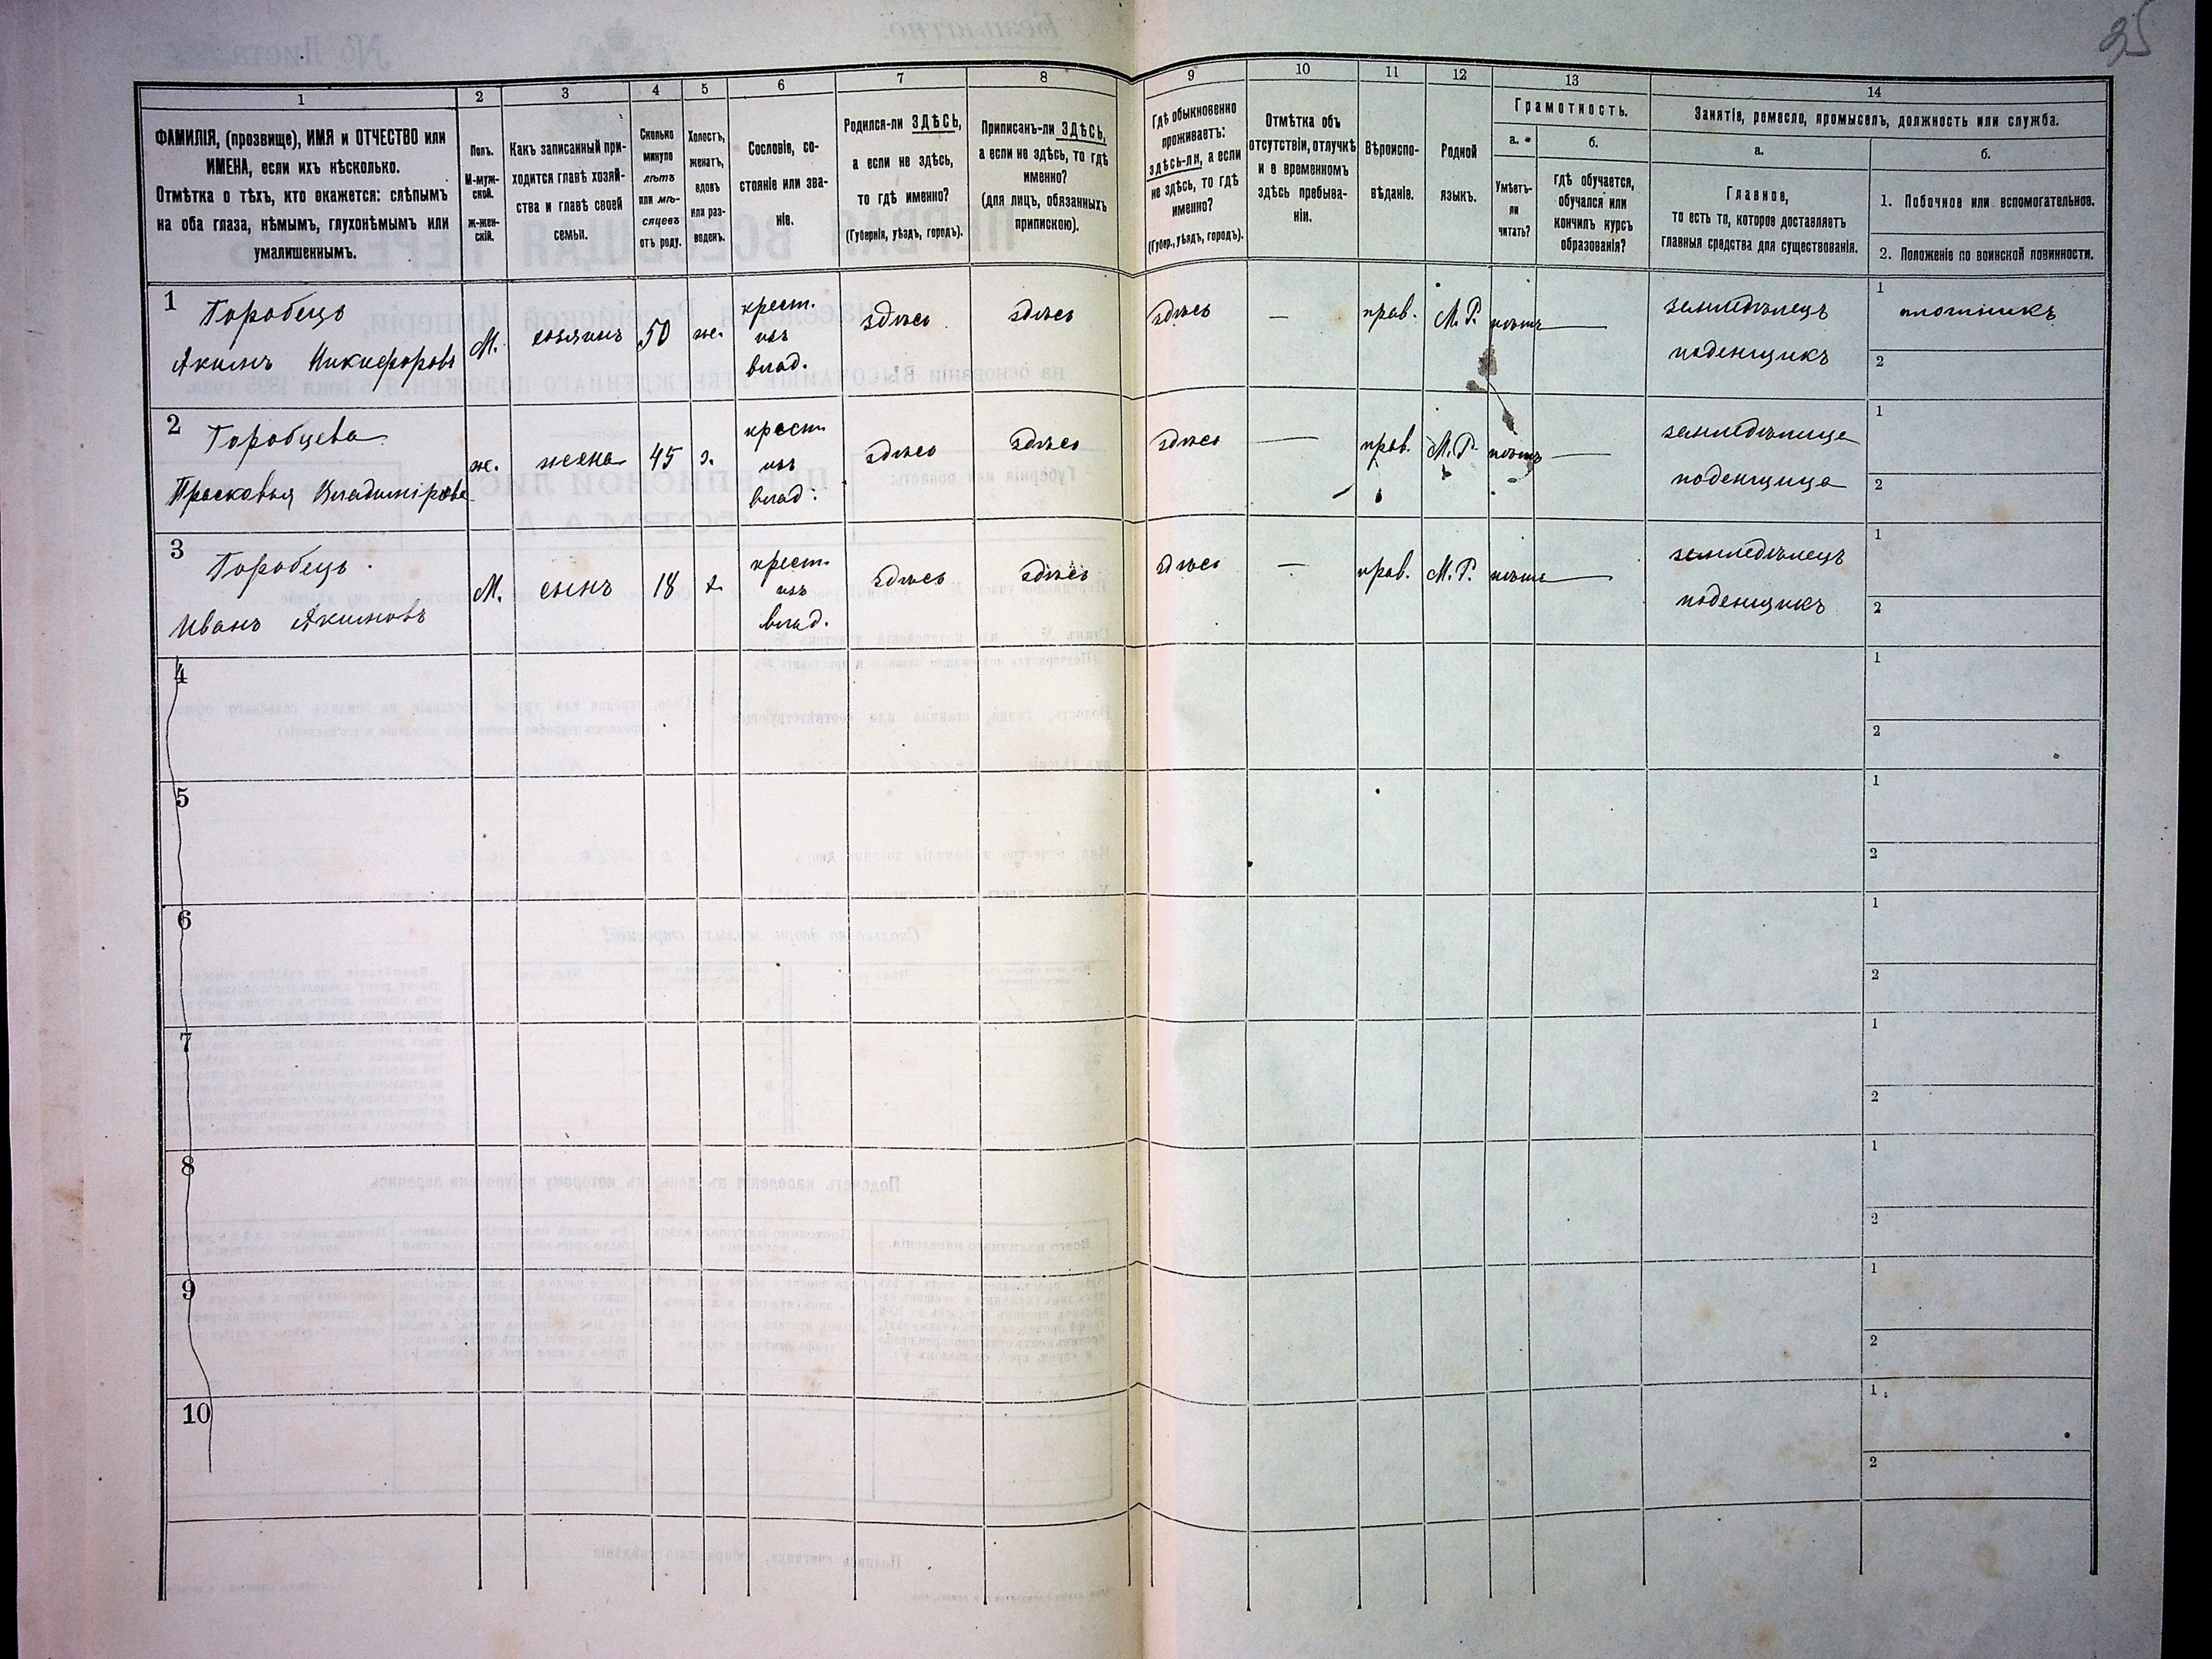 25
1 2 3 4 5 6 7 8 9 10 11 12 13 14
ФАМИЛІЯ, (прозвище), ИМЯ и ОТЧЕСТВО или
ИМЕНА, если ихъ нѣсколько.
Отмѣтка о тѣхъ, кто окажется: слѣпымъ
на оба глаза, нѣмымъ, глухонѣмымъ или
умалишеннымъ.
Полъ.
М-муж-
ской.
ж-жен-
скій.
Какъ записанный при-
ходится главѣ хозяй-
ства и главѣ своей
семьи.
Сколько
минуло
лѣтъ
или мѣ-
сяцевъ
отъ роду.
Холостъ,
женатъ,
вдовъ
или раз-
веденъ.
Сословіе, со-
стояніе или зва-
ніе.
Родился-ли ЗДѢСЬ,
а если не здѣсь,
то гдѣ именно?
(Губернія, уѣздъ, городъ).
Приписанъ-ли ЗДѢСЬ,
а если не здѣсь, то гдѣ
именно?
(для лицъ, обязанныхъ
припискою).
Гдѣ обыкновенно
проживаетъ:
здѣсь-ли, а если
не здѣсь, то гдѣ
именно?
(Губер., уѣздъ, городъ).
Отмѣтка объ
отсутствіи, отлучкѣ
и о временномъ
здѣсь пребыва-
ніи.
Вѣроиспо-
вѣданіе.
Родной
языкъ.
Грамотность.
а.
Умѣетъ-
ли
читать?
б.
гдѣ обучается,
обучался или
кончилъ курсъ
образованія?
Занятіе, ремесло, промыселъ, должность или служба.
а.
Главное,
то есть то, которое доставляетъ
главныя средства для существованія.
б.
1. Побочное или вспомогательное.
2. Положеніе по воинской повинности.
1 Горобець
Якимъ Никифоровъ
М.
хозяинъ
50
же.
крест.
изъ
влад.
здѣсь
здѣсь
здѣсь
—
прав.
М. Р.
нѣтъ —
земледѣлецъ
поденщикъ
1 плотникъ
2
2 Горобцева
Прасковья Владиміровна
же.
жена
45
з.
крест
изъ
влад.
здѣсь
здѣсь
здѣсь
—
прав.
М. Р.
нѣтъ —
земледѣлица
поденщица
1
2
3 Горобець
Иванъ Якимовъ
М.
сынъ
18
х.
крест.
изъ
влад.
здѣсь
здѣсь
здѣсь
—
прав.
М. Р.
нѣтъ —
земледѣлецъ
поденщикъ
1
2
4
1
2
5
1
2
6
1
2
7
1
2
8
1
2
9
1
2
10
1
2